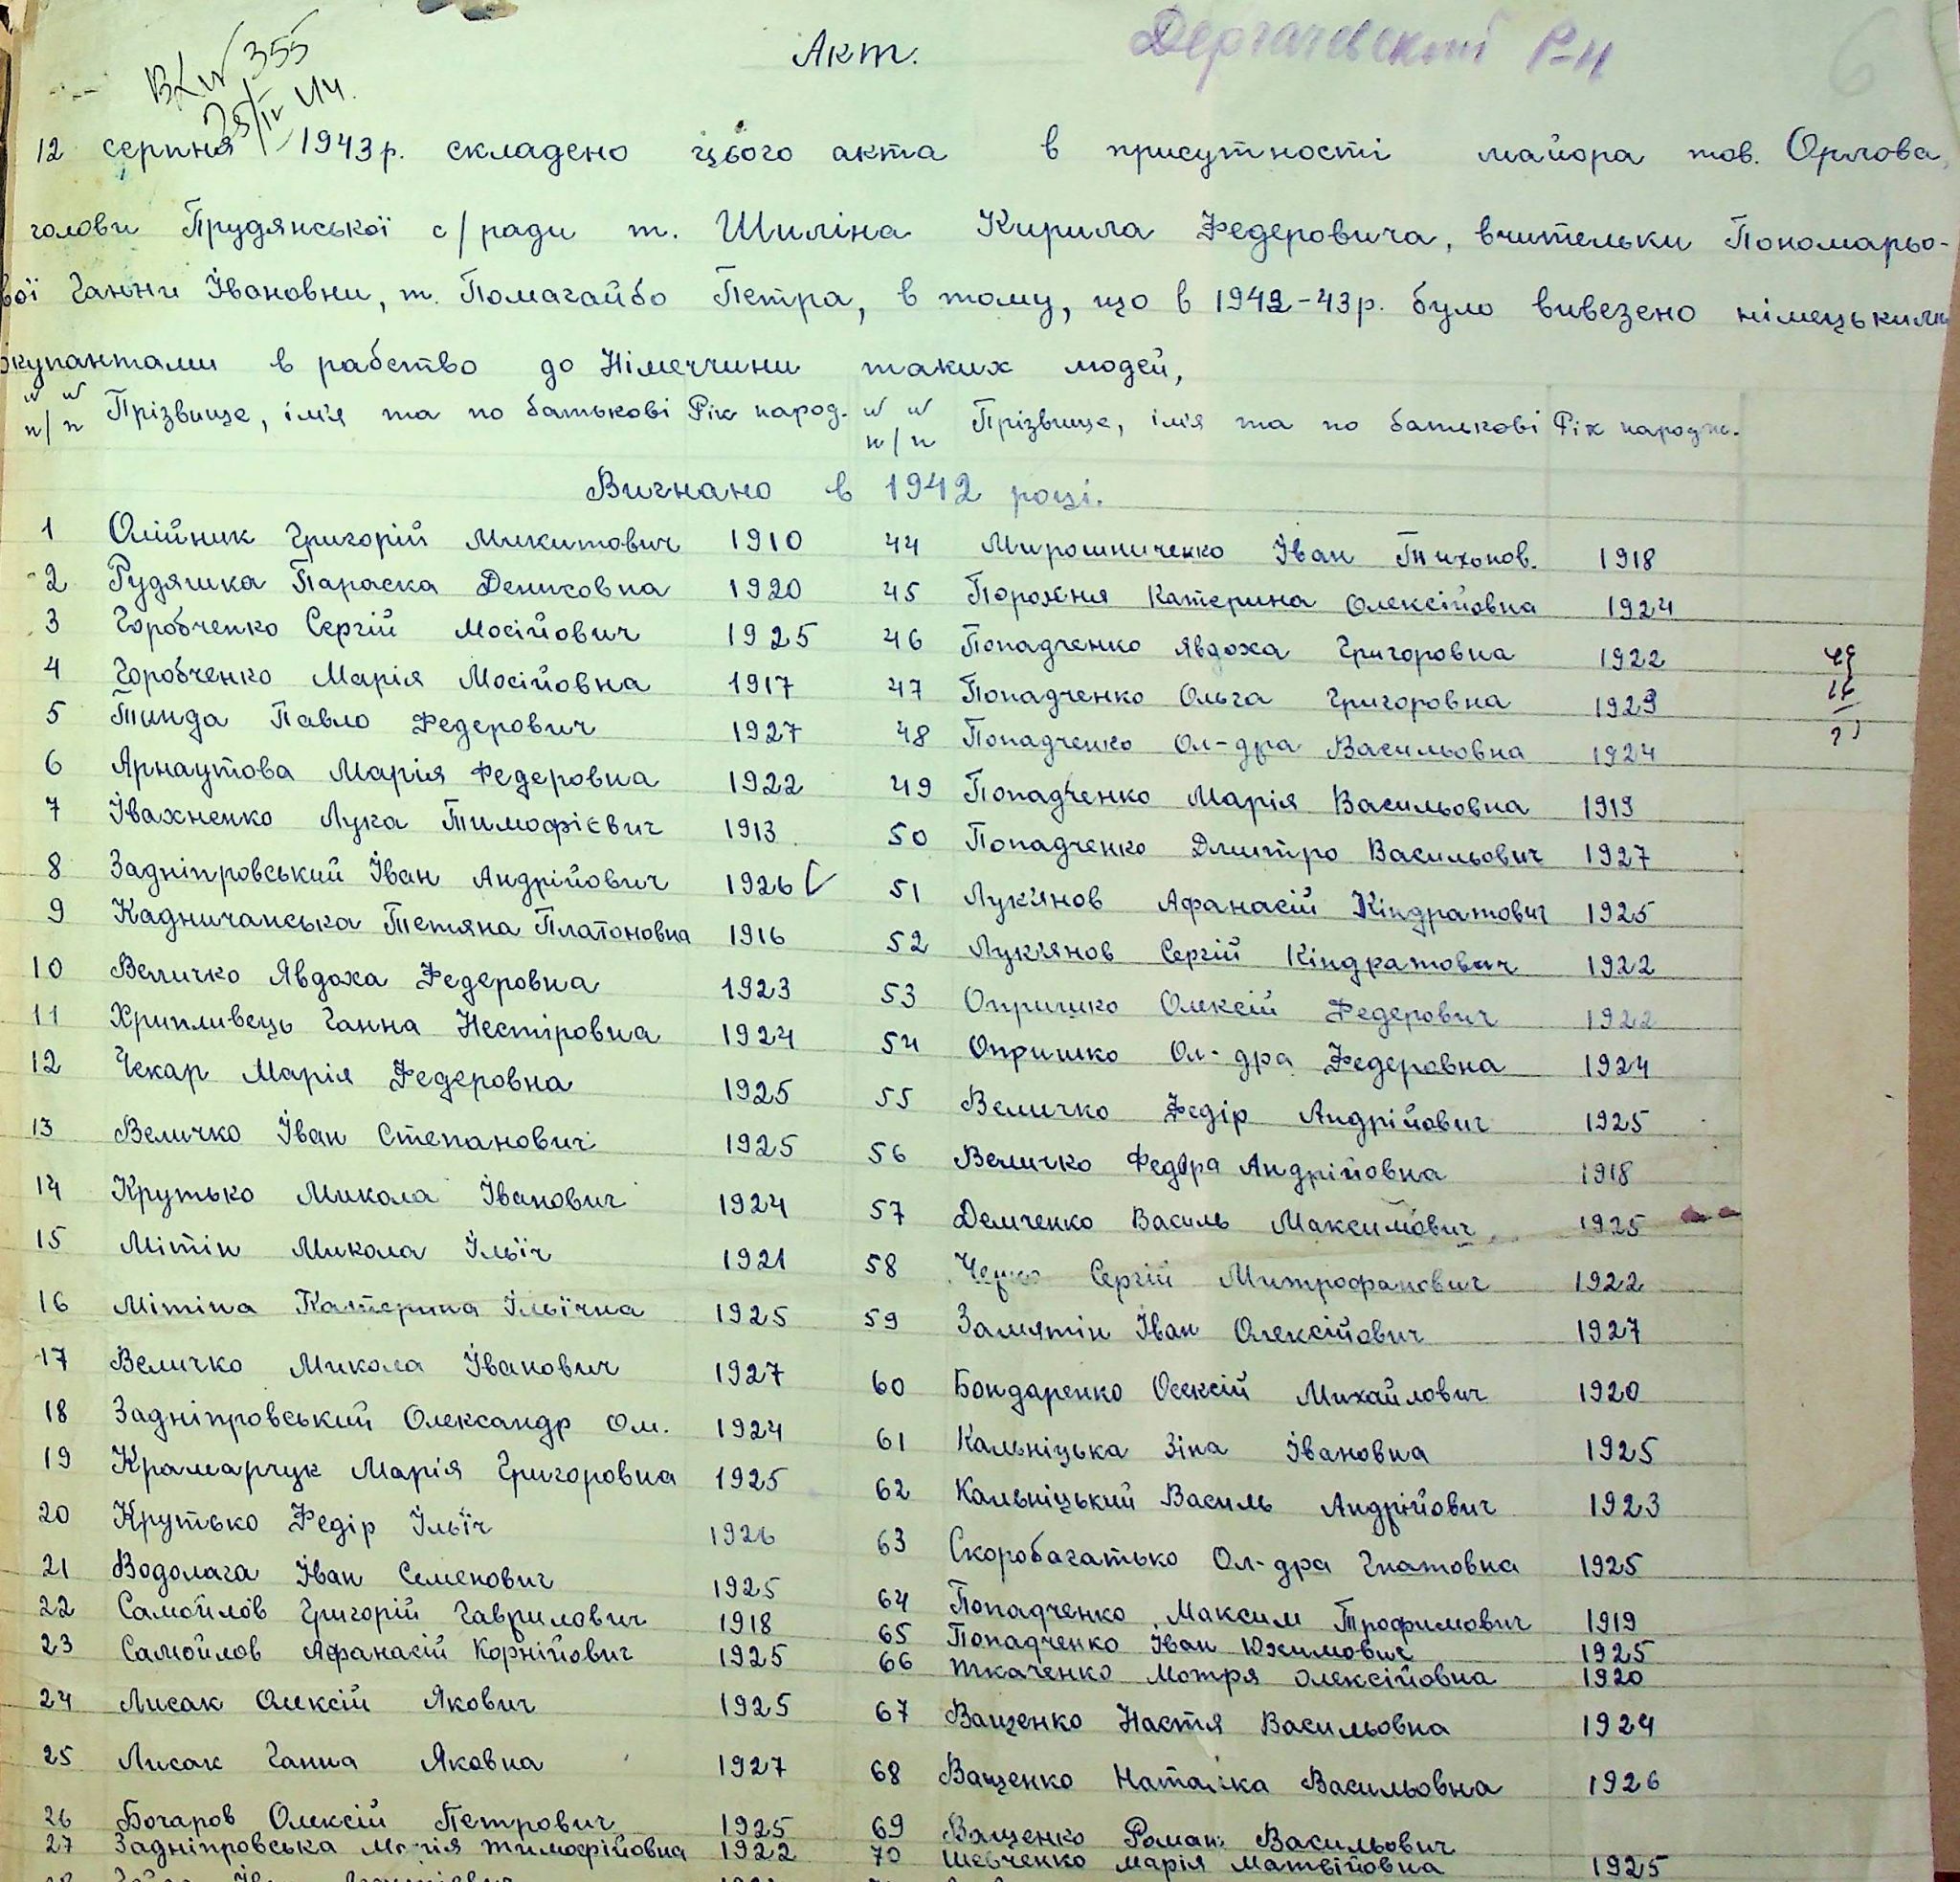 Акт.
Дергачевский Р-н
6
355
12 серпня 1943р. складено цього акта в присутності майора тов. Орлова,
голови Прудянської с/ради т. Шиліна Кирила Федеровича, вчительки Пономарьо-
вої Ганни Івановни, т. Помагайбо Петра, в тому, що в 1942-43р. було вивезено німецькими
окупантами в рабство до Німеччини таких людей,
№ № п/п Прізвище, ім'я та по батькові Рік народ. № № п/п Прізвище, ім'я та по батькові Рік народж.
Вигнано в 1942 році.
1 Олійник Григорій Микитович 1910 44 Мирошниченко Іван Тихонов. 1918
2 Рудяшка Параска Денисовна 1920 45 Порожня Катерина Олексійовна 1924
3 Горобченко Сергій Мосійович 1925 46 Попадченко Явдоха Григоровна 1922
4 Горобченко Марія Мосійовна 1917 47 Попадченко Ольга Григоровна 1929
5 Тинда Павло Федерович 1927 48 Попадченко Ол-дра Васильовна 1924
6 Арнаутова Марія Федеровна 1922 49 Попадченко Марія Васильовна 1919
7 Івахненко Лука Тимофієвич 1913 50 Попадченко Дмитро Васильович 1927
8 Задніпровський Іван Андрійович 1926 51 Лук'янов Афанасій Кіндратович 1925
9 Кадничанська Тетяна Платоновна 1916 52 Лук'янов Сергій Кіндратович 1922
10 Величко Явдоха Федеровна 1923 53 Опришко Олексій Федерович 1922
11 Хрипливець Ганна Нестіровна 1924 54 Опришко Ол-дра Федеровна 1924
12 Чекар Марія Федеровна 1925 55 Величко Федір Андрійович 1925
13 Величко Іван Степанович 1925 56 Величко Федора Андрійовна 1918
14 Крутько Микола Іванович 1924 57 Демченко Василь Максимович 1925
15 Мітін Микола Ільїч 1921 58 Сергій Митрофанович 1922
16 Мітіна Катерина Ільїчна 1925 59 Замятін Іван Олексійович 1927
17 Величко Микола Іванович 1927 60 Бондаренко Олексій Михайлович 1920
18 Задніпровський Олександр Ом. 1924 61 Кальніцька Зіна Івановна 1925
19 Крамарчук Марія Григоровна 1925 62 Кальніцький Василь Андрійович 1923
20 Крутько Федір Ільїч 1926 63 Скоробагатько Ол-дра Гнатовна 1925
21 Водолага Іван Семенович 1925 64 Попадченко Максим Трофимович 1919
22 Самойлов Григорій Гаврилович 1918 65 Попадченко Іван Юхимович 1925
23 Самойлов Афанасій Корнійович 1925 66 Ткаченко Мотря Олексійовна 1920
24 Лисак Олексій Якович 1925 67 Ващенко Настя Васильовна 1924
25 Лисак Ганна Яковна 1927 68 Ващенко Наталка Васильовна 1926
26 Бочаров Олексій Петрович 1925 69 Ващенко Роман Васильович
27 Задніпровська Марія Тимофійовна 1922 70 Шевченко Марія Матвійовна 1925